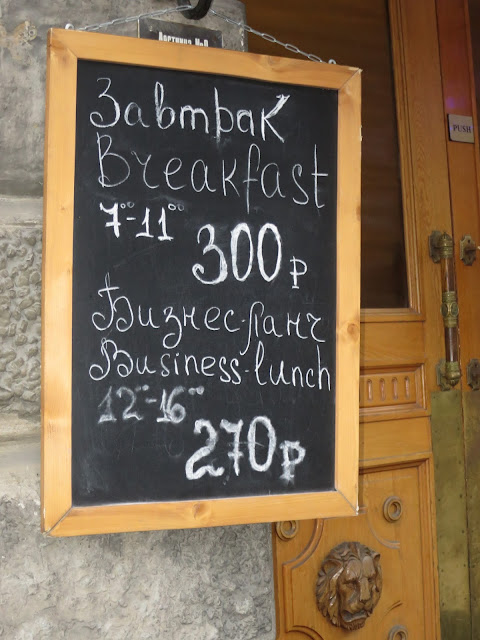 Завтрак
Breakfast
7⁰⁰-11⁰⁰
300р
Бизнес-ланч
Business-lunch
12⁰⁰-16⁰⁰
270р
PUSH